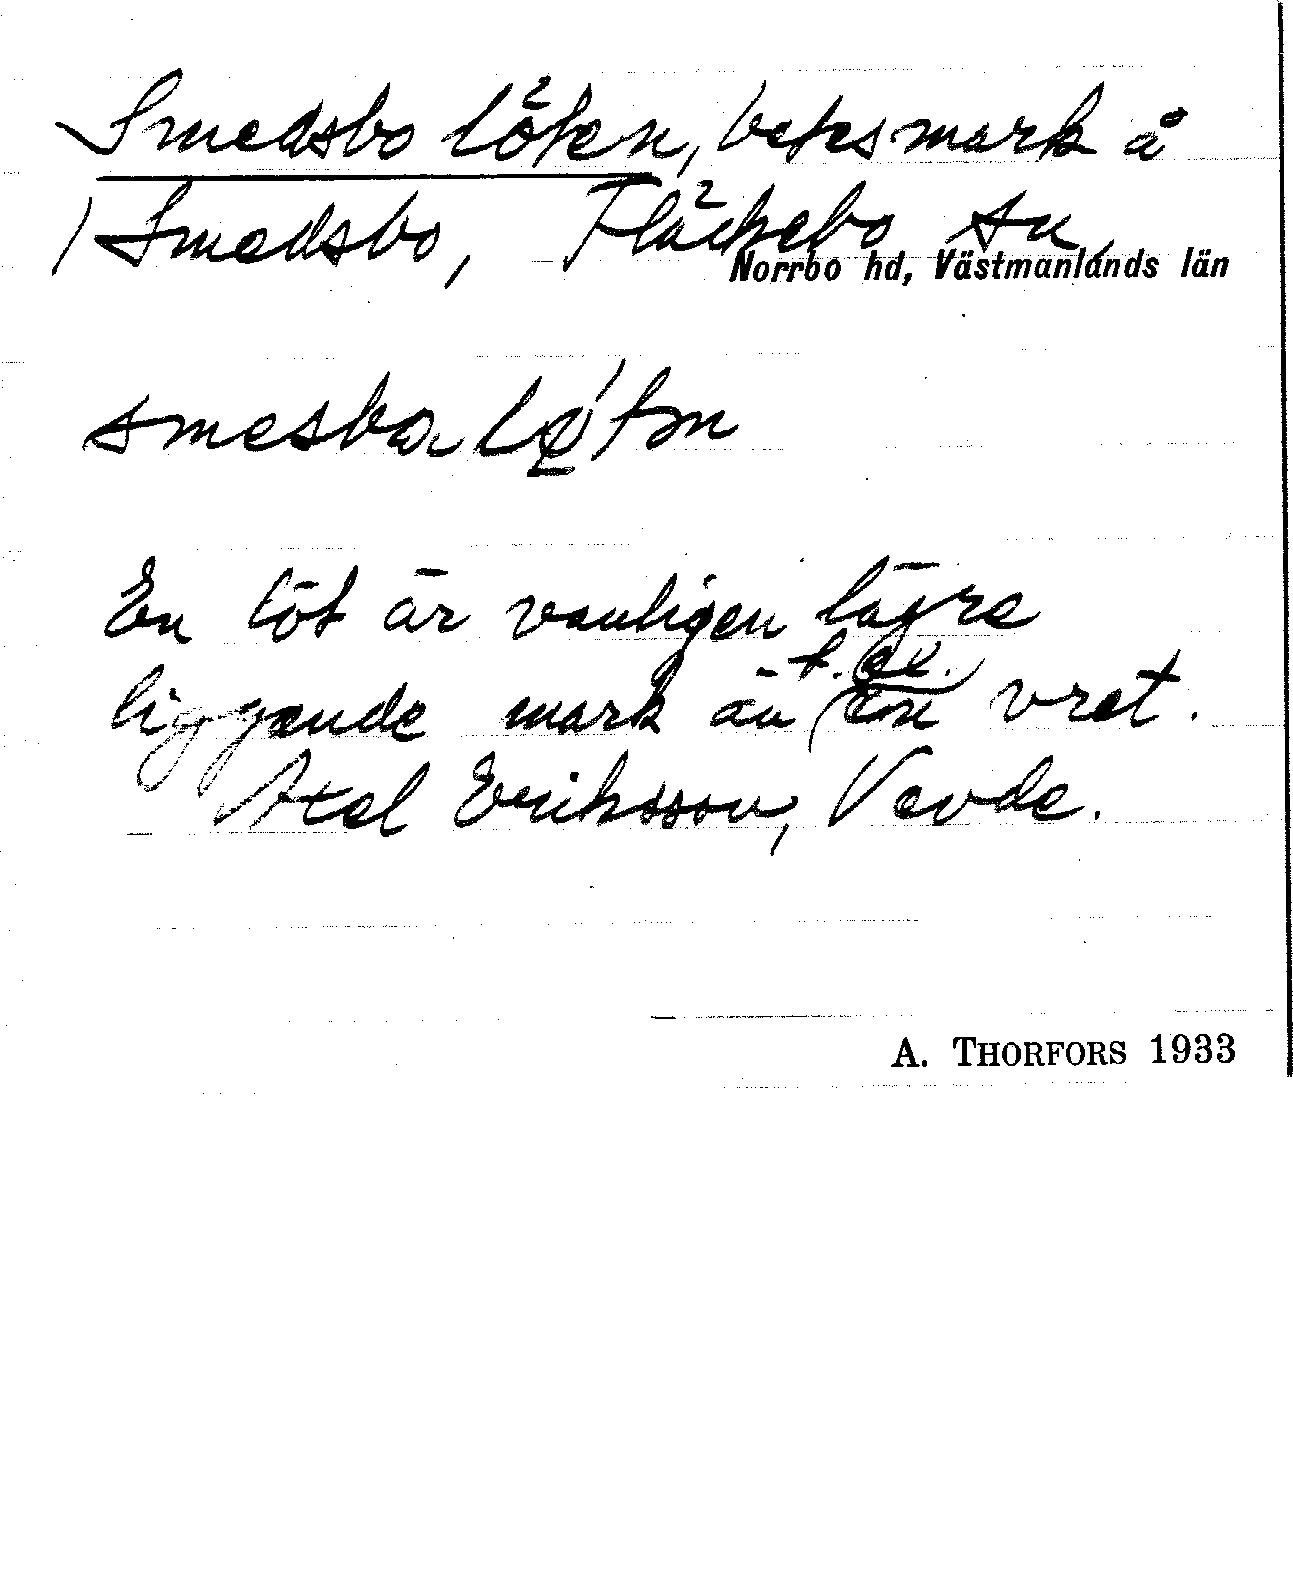 Smedsbo löten, betesmark å
Smedsbo, Fläckebo sn,
Norrbo hd, Västmanlands län
smesbo lø̱´tən
En löt är vanligen lägre
liggande mark än t. ex. en vret.
Axel Eriksson, Vevde.
A. THORFORS 1933